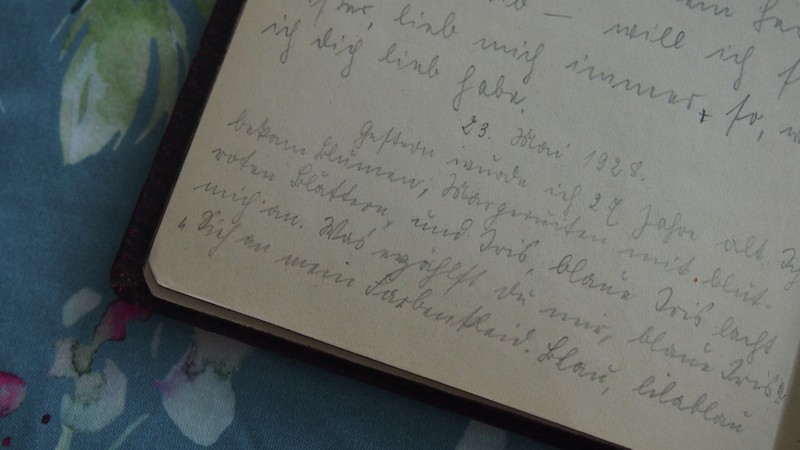 will ich
lieb mich immer so,
ich dich lieb habe.
23. Mai 1928.
Gestern wurde ich 27 Jahre alt. Ich
bekam Blumen, Margeruiten mit blut-
roten Blättern, und Iris, blaue Iris lacht
mich an. Was erzählst du mir, blaue Iris?
"Sieh an mein Farbenkleid. Blau, lilablau